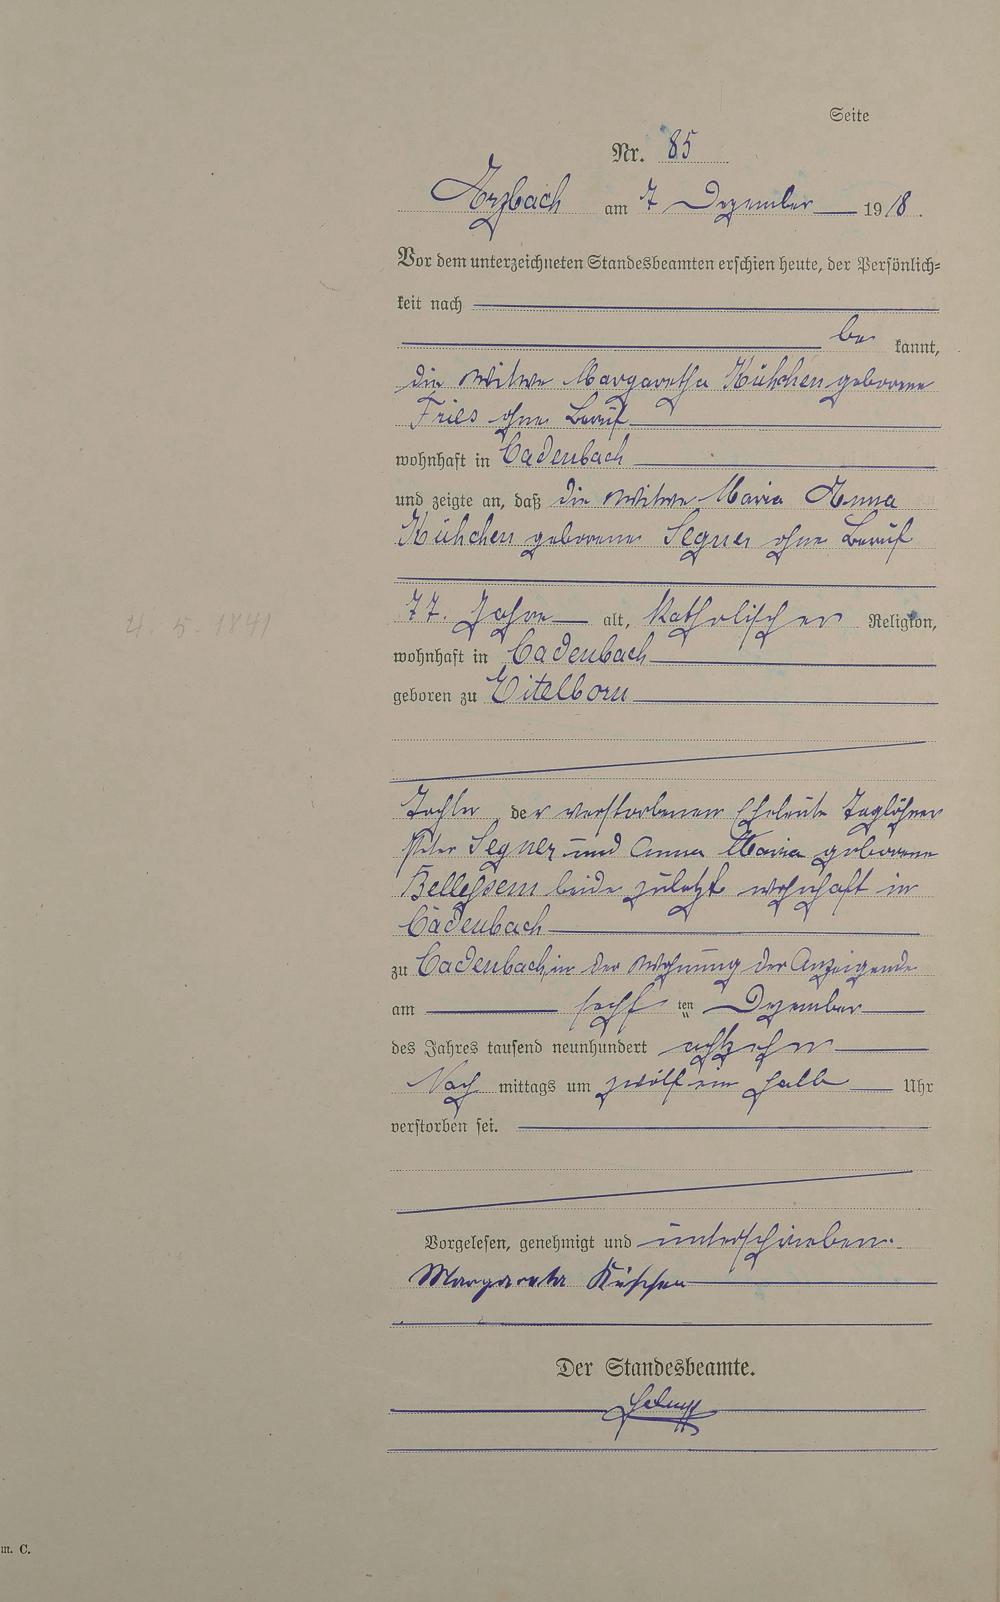 Seite
Nr. 85
Arzbach am 7 Dezember 1918.
Vor dem unterzeichneten Standesbeamten erschien heute, der Persönlich-
keit nach
be kannt,
die Witwe Margaretha Kühchen geborene
Fries ohne Beruf
wohnhaft in Cadenbach
und zeigte an, daß die Witwe Maria Anna
Kühchen geborene Segner ohne Beruf
77. Jahre alt, katholischer Religion,
4. 5. 1841
wohnhaft in Cadenbach
geboren zu Eitelborn
Tochter der verstorbenen Eheleute Taglöhner
Peter Segner und Anna Maria geborene
beide zuletzt wohnhaft in
Cadenbach
zu Cadenbach, in der Wohnung der Anzeigende
am sechs ten Dezember
des Jahres tausend neunhundert achtzehn
Nach mittags um zwölf ein halb Uhr
verstorben sei.
Vorgelesen, genehmigt und unterschrieben.
Margareta Küchen
Der Standesbeamte.
m. C.